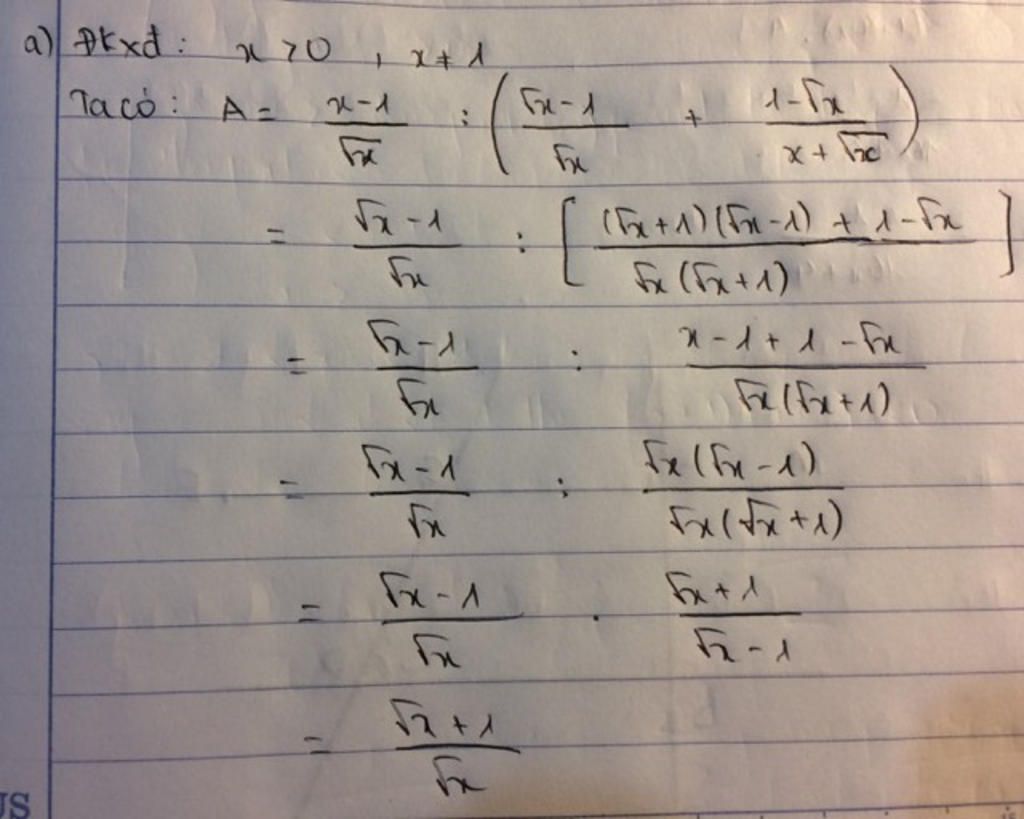 a) Đkxđ: x > 0, x ≠ 1
Ta có: A = (x - 1)/√x : ( (√x - 1)/√x + (1 - √x)/(x + √x) )
= (√x - 1)/√x : [ ((√x + 1)(√x - 1) + 1 - √x)/(√x(√x + 1)) ]
= (√x - 1)/√x : (x - 1 + 1 - √x)/(√x(√x + 1))
= (√x - 1)/√x : (√x(√x - 1))/(√x(√x + 1))
= (√x - 1)/√x . (√x + 1)/(√x - 1)
= (√x + 1)/√x
US